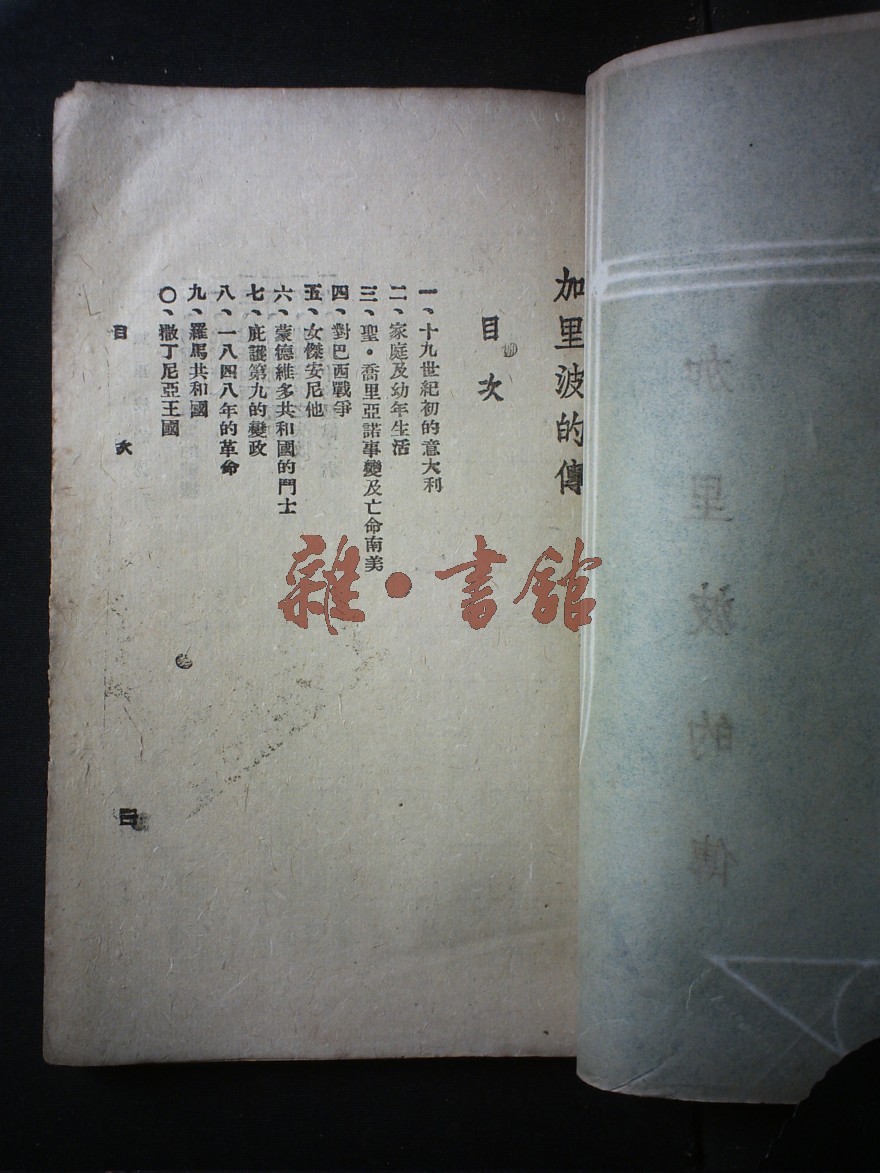 加里波的傳
目次
一、十九世紀初的意大利
二、家庭及幼年生活
三、聖·喬里亞諾事變及亡命南美
四、對巴西戰爭
五、女傑安尼他
六、蒙德維多共和國的鬥士
七、庇護第九的變政
八、一八四八年的革命
九、羅馬共和國
〇、撒丁尼亞王國
目次
雜·書館
加里波的傳